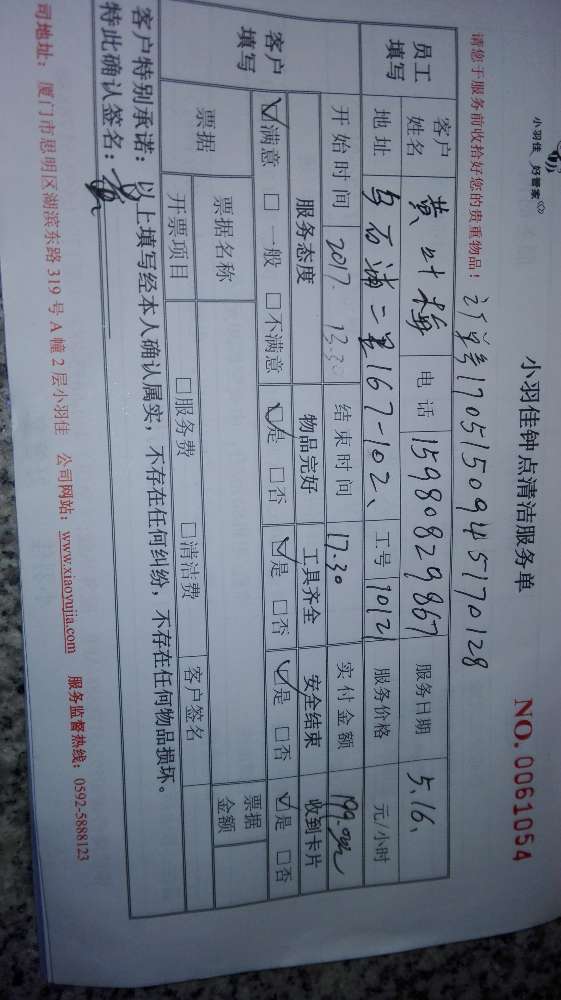 小羽佳 好管家
小羽佳钟点清洁服务单
NO. 0061054
请您于服务前收拾好您的贵重物品! 订单号1705150945170128
员工填写 客户姓名 黄叶梅 电话 15980829867 服务日期 5.16.
地址 乌石浦二里167-102、 工号 10121 服务价格 元/小时
开始时间 2017. 13.30 结束时间 17.30 实付金额 199.
客户填写 服务态度 物品完好 工具齐全 安全结束 收到卡片
☑满意 □一般 □不满意 ☑是 □否 ☑是 □否 ☑是 □否 ☑是 □否
票据 票据名称 票据金额
开票项目 □服务费 □清洁费 客户签名
客户特别承诺:以上填写经本人确认属实,不存在任何纠纷,不存在任何物品损坏。
特此确认签名:
司地址: 厦门市思明区湖滨东路 319 号 A 幢 2 层小羽佳 公司网站: www.xiaoyujia.com 服务监督热线: 0592-5888123